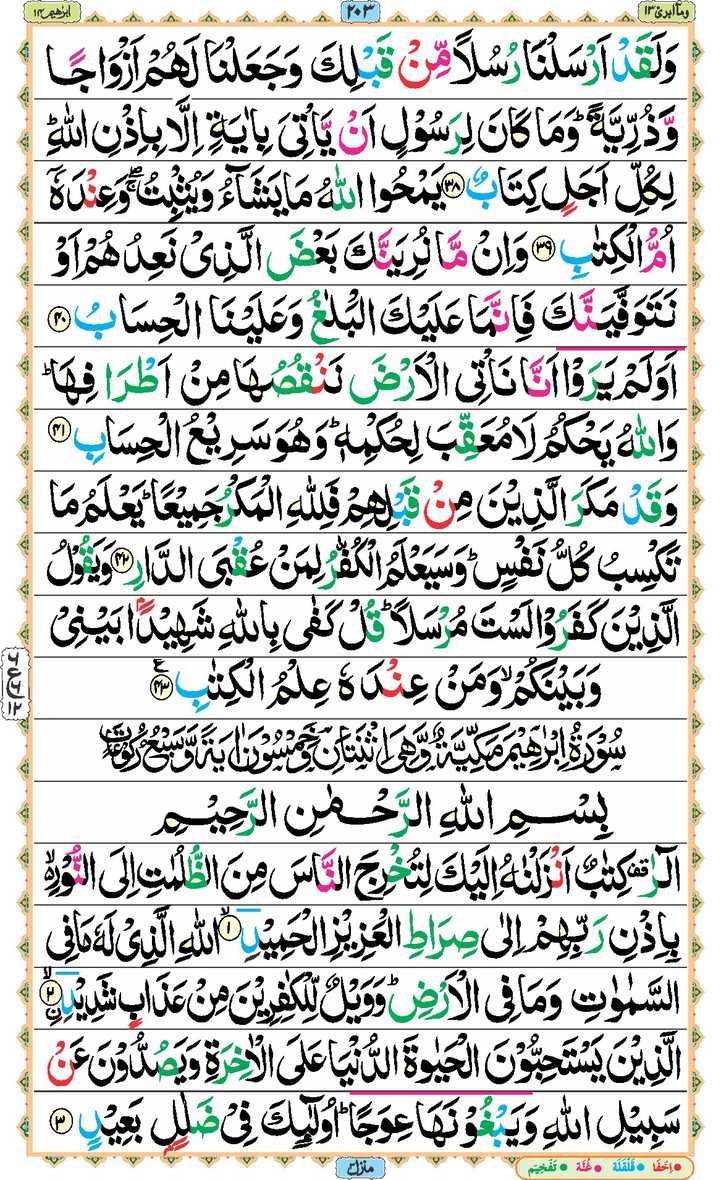 وماابرئ ١٣
٢٠٣
ابرٰهيم ١٤
وَلَقَدْ اَرْسَلْنَا رُسُلًا مِّنْ قَبْلِكَ وَجَعَلْنَا لَهُمْ اَزْوَاجًا
وَّذُرِّيَّةً ؕ وَمَا كَانَ لِرَسُوْلٍ اَنْ يَّاْتِىَ بِاٰيَةٍ اِلَّا بِاِذْنِ اللّٰهِ ؕ
لِكُلِّ اَجَلٍ كِتَابٌ ٣٨ يَمْحُوا اللّٰهُ مَا يَشَآءُ وَيُثْبِتُ ۖۚ وَعِنْدَهٗۤ
اُمُّ الْكِتٰبِ ٣٩ وَاِنْ مَّا نُرِيَنَّكَ بَعْضَ الَّذِىْ نَعِدُهُمْ اَوْ
نَتَوَفَّيَنَّكَ فَاِنَّمَا عَلَيْكَ الْبَلٰغُ وَعَلَيْنَا الْحِسَابُ ٤٠
اَوَلَمْ يَرَوْا اَنَّا نَاْتِى الْاَرْضَ نَنْقُصُهَا مِنْ اَطْرَافِهَا ؕ
وَاللّٰهُ يَحْكُمُ لَا مُعَقِّبَ لِحُكْمِهٖ ؕ وَهُوَ سَرِيْعُ الْحِسَابِ ٤١
وَقَدْ مَكَرَ الَّذِيْنَ مِنْ قَبْلِهِمْ فَلِلّٰهِ الْمَكْرُ جَمِيْعًا ؕ يَعْلَمُ مَا
تَكْسِبُ كُلُّ نَفْسٍ ؕ وَسَيَعْلَمُ الْكُفّٰرُ لِمَنْ عُقْبَى الدَّارِ ٤٢ وَيَقُوْلُ
الَّذِيْنَ كَفَرُوْا لَسْتَ مُرْسَلًا ؕ قُلْ كَفٰى بِاللّٰهِ شَهِيْدًۢا بَيْنِىْ
وَبَيْنَكُمْ ۙ وَمَنْ عِنْدَهٗ عِلْمُ الْكِتٰبِ ٤٣ ع
سُوْرَةُ اِبْرٰهِيْمَ مَكِّيَّةٌ وَّهِىَ اثْنَتَانِ وَخَمْسُوْنَ اٰيَةً وَّسَبْعُ رُكُوْعَاتٍ
بِسْمِ اللّٰهِ الرَّحْمٰنِ الرَّحِيْمِ
الٓرٰ ۟ كِتٰبٌ اَنْزَلْنٰهُ اِلَيْكَ لِتُخْرِجَ النَّاسَ مِنَ الظُّلُمٰتِ اِلَى النُّوْرِ ۙ۬
بِاِذْنِ رَبِّهِمْ اِلٰى صِرَاطِ الْعَزِيْزِ الْحَمِيْدِ ۙ ١ اللّٰهِ الَّذِىْ لَهٗ مَا فِى
السَّمٰوٰتِ وَمَا فِى الْاَرْضِ ؕ وَوَيْلٌ لِّلْكٰفِرِيْنَ مِنْ عَذَابٍ شَدِيْدِ ۙ ٢
الَّذِيْنَ يَسْتَحِبُّوْنَ الْحَيٰوةَ الدُّنْيَا عَلَى الْاٰخِرَةِ وَيَصُدُّوْنَ عَنْ
سَبِيْلِ اللّٰهِ وَيَبْغُوْنَهَا عِوَجًا ؕ اُولٰٓئِكَ فِىْ ضَلٰلٍ بَعِيْدٍ ٣
منزل ٣
• اِخفَا • قَلقَلَه • غُنَّه • تَفْخِيْم